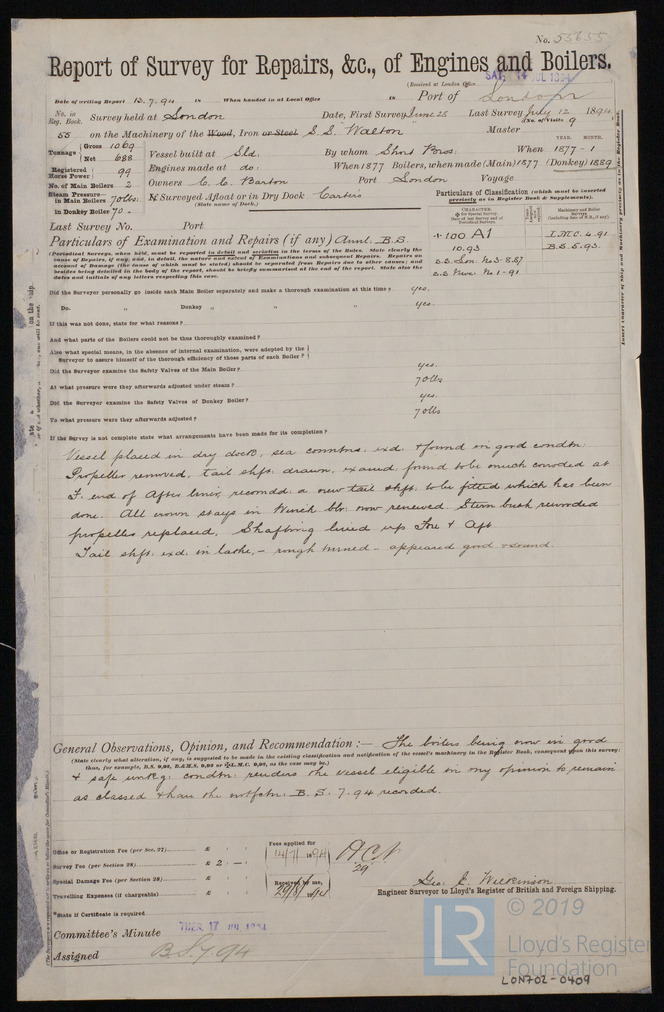 No. 55655
Report of Survey for Repairs, &c., of Engines and Boilers.
(Received at London Office SAT. 14 JUL 1894
Date of writing Report 13.7.94 18 When handed in at Local Office 18 Port of London
No. in Reg. Book. Survey held at London Date, First Survey June 25 Last Survey July 12 1894
(No. of Visits 9
55 on the Machinery of the Wood, Iron or Steel S.S. Walton Master
Tonnage Gross 1069 Net 688 Vessel built at Sld. By whom Short Bros. When 1877 - 1
YEAR. MONTH.
Registered Horse Power 99 Engines made at do: When 1877 Boilers, when made (Main) 1877 (Donkey) 1889
No. of Main Boilers 2 Owners C. C. Barton Port London Voyage
Steam Pressure in Main Boilers 70lbs. If Surveyed Afloat or in Dry Dock Cartiers
(State name of Dock.)
in Donkey Boiler 70
Particulars of Classification (which must be inserted precisely as in Register Book & Supplements).
CHARACTER. Machinery and Boiler Surveys
+100 A1 L.M.C. 4.91
10.93 B.S. 5.93.
S.S. Lon. No 3-8.87
S.S. Nwc. No 1-91
Last Survey No. Port
Particulars of Examination and Repairs (if any) Annl. B.S.
(Periodical Surveys, when held, must be reported in detail and seriatim in the terms of the Rules. State clearly the cause of Repairs, if any, and, in detail, the nature and extent of Examinations and subsequent Repairs. Repairs on account of Damage (the cause of which must be stated) should be separated from Repairs due to other causes; and besides being detailed in the body of the report, should be briefly summarised at the end of the report. State also the dates and initials of any letters respecting this case.
Did the Surveyor personally go inside each Main Boiler separately and make a thorough examination at this time? yes.
Do. " Donkey " " " yes.
If this was not done, state for what reasons?
And what parts of the Boilers could not be thus thoroughly examined?
Also what special means, in the absence of internal examination, were adopted by the Surveyor to assure himself of the thorough efficiency of those parts of each Boiler?
Did the Surveyor examine the Safety Valves of the Main Boiler? yes.
At what pressure were they afterwards adjusted under steam? 70lbs
Did the Surveyor examine the Safety Valves of Donkey Boiler? yes.
To what pressure were they afterwards adjusted? 70lbs
If the Survey is not complete state what arrangements have been made for its completion?
Vessel placed in dry dock, sea conntns. exd. & found in good condtn.
Propeller removed, tail shft. drawn, examd. found to be much corroded at
F. end of After liner, recomdd. a new tail shft. to be fitted which has been
done. All crown stays in Winch blr. now renewed Stern bush rewooded
propeller replaced, Shafting lined up Fore & Aft
Tail shft. exd. in lathe, - rough turned - appeared good & sound.
General Observations, Opinion, and Recommendation :— The boilers being now in good
(State clearly what alteration, if any, is suggested to be made in the existing classification and notification of the vessel's machinery in the Register Book, consequent upon this survey: thus, for example, B.S. 9,93 or L.M.C. 9,93, as the case may be.)
& safe workg: condtn: renders the vessel eligible in my opinion to remain
as classed & have the notfctn: B.S. 7.94 recorded.
Office or Registration Fee (per Sec. 27) £
Survey Fee (per Section 28) £ 2 : — :
Special Damage Fee (per Section 28) £
Travelling Expenses (if chargeable) £
Fees applied for 14/7/1894
Received by me, 29/8/1894
Geo. E. Wilkinson
Engineer Surveyor to Lloyd's Register of British and Foreign Shipping.
*State if Certificate is required
Committee's Minute TUES. 17 JUL 1894
Assigned B.S. 7.94
© 2019
LR
Lloyd's Register
Foundation
LON702-0409